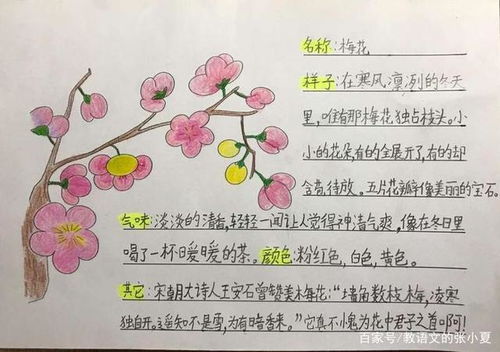 名称:梅花
样子:在寒风凛冽的冬天
里,唯有那梅花独占枝头。小
小的花朵,有的全展开了,有的却
含苞待放。五片花瓣像美丽的宝石。
气味:淡淡的清香,轻轻一闻让人觉得神清气爽,像在冬日里
喝了一杯暖暖的茶。颜色:粉红色,白色,黄色。
其它:宋朝大诗人王安石曾赞美梅花:“墙角数枝梅,凌寒
独自开。遥知不是雪,为有暗香来。”它真不愧为花中君子之首啊!
百家号/教语文的张小夏